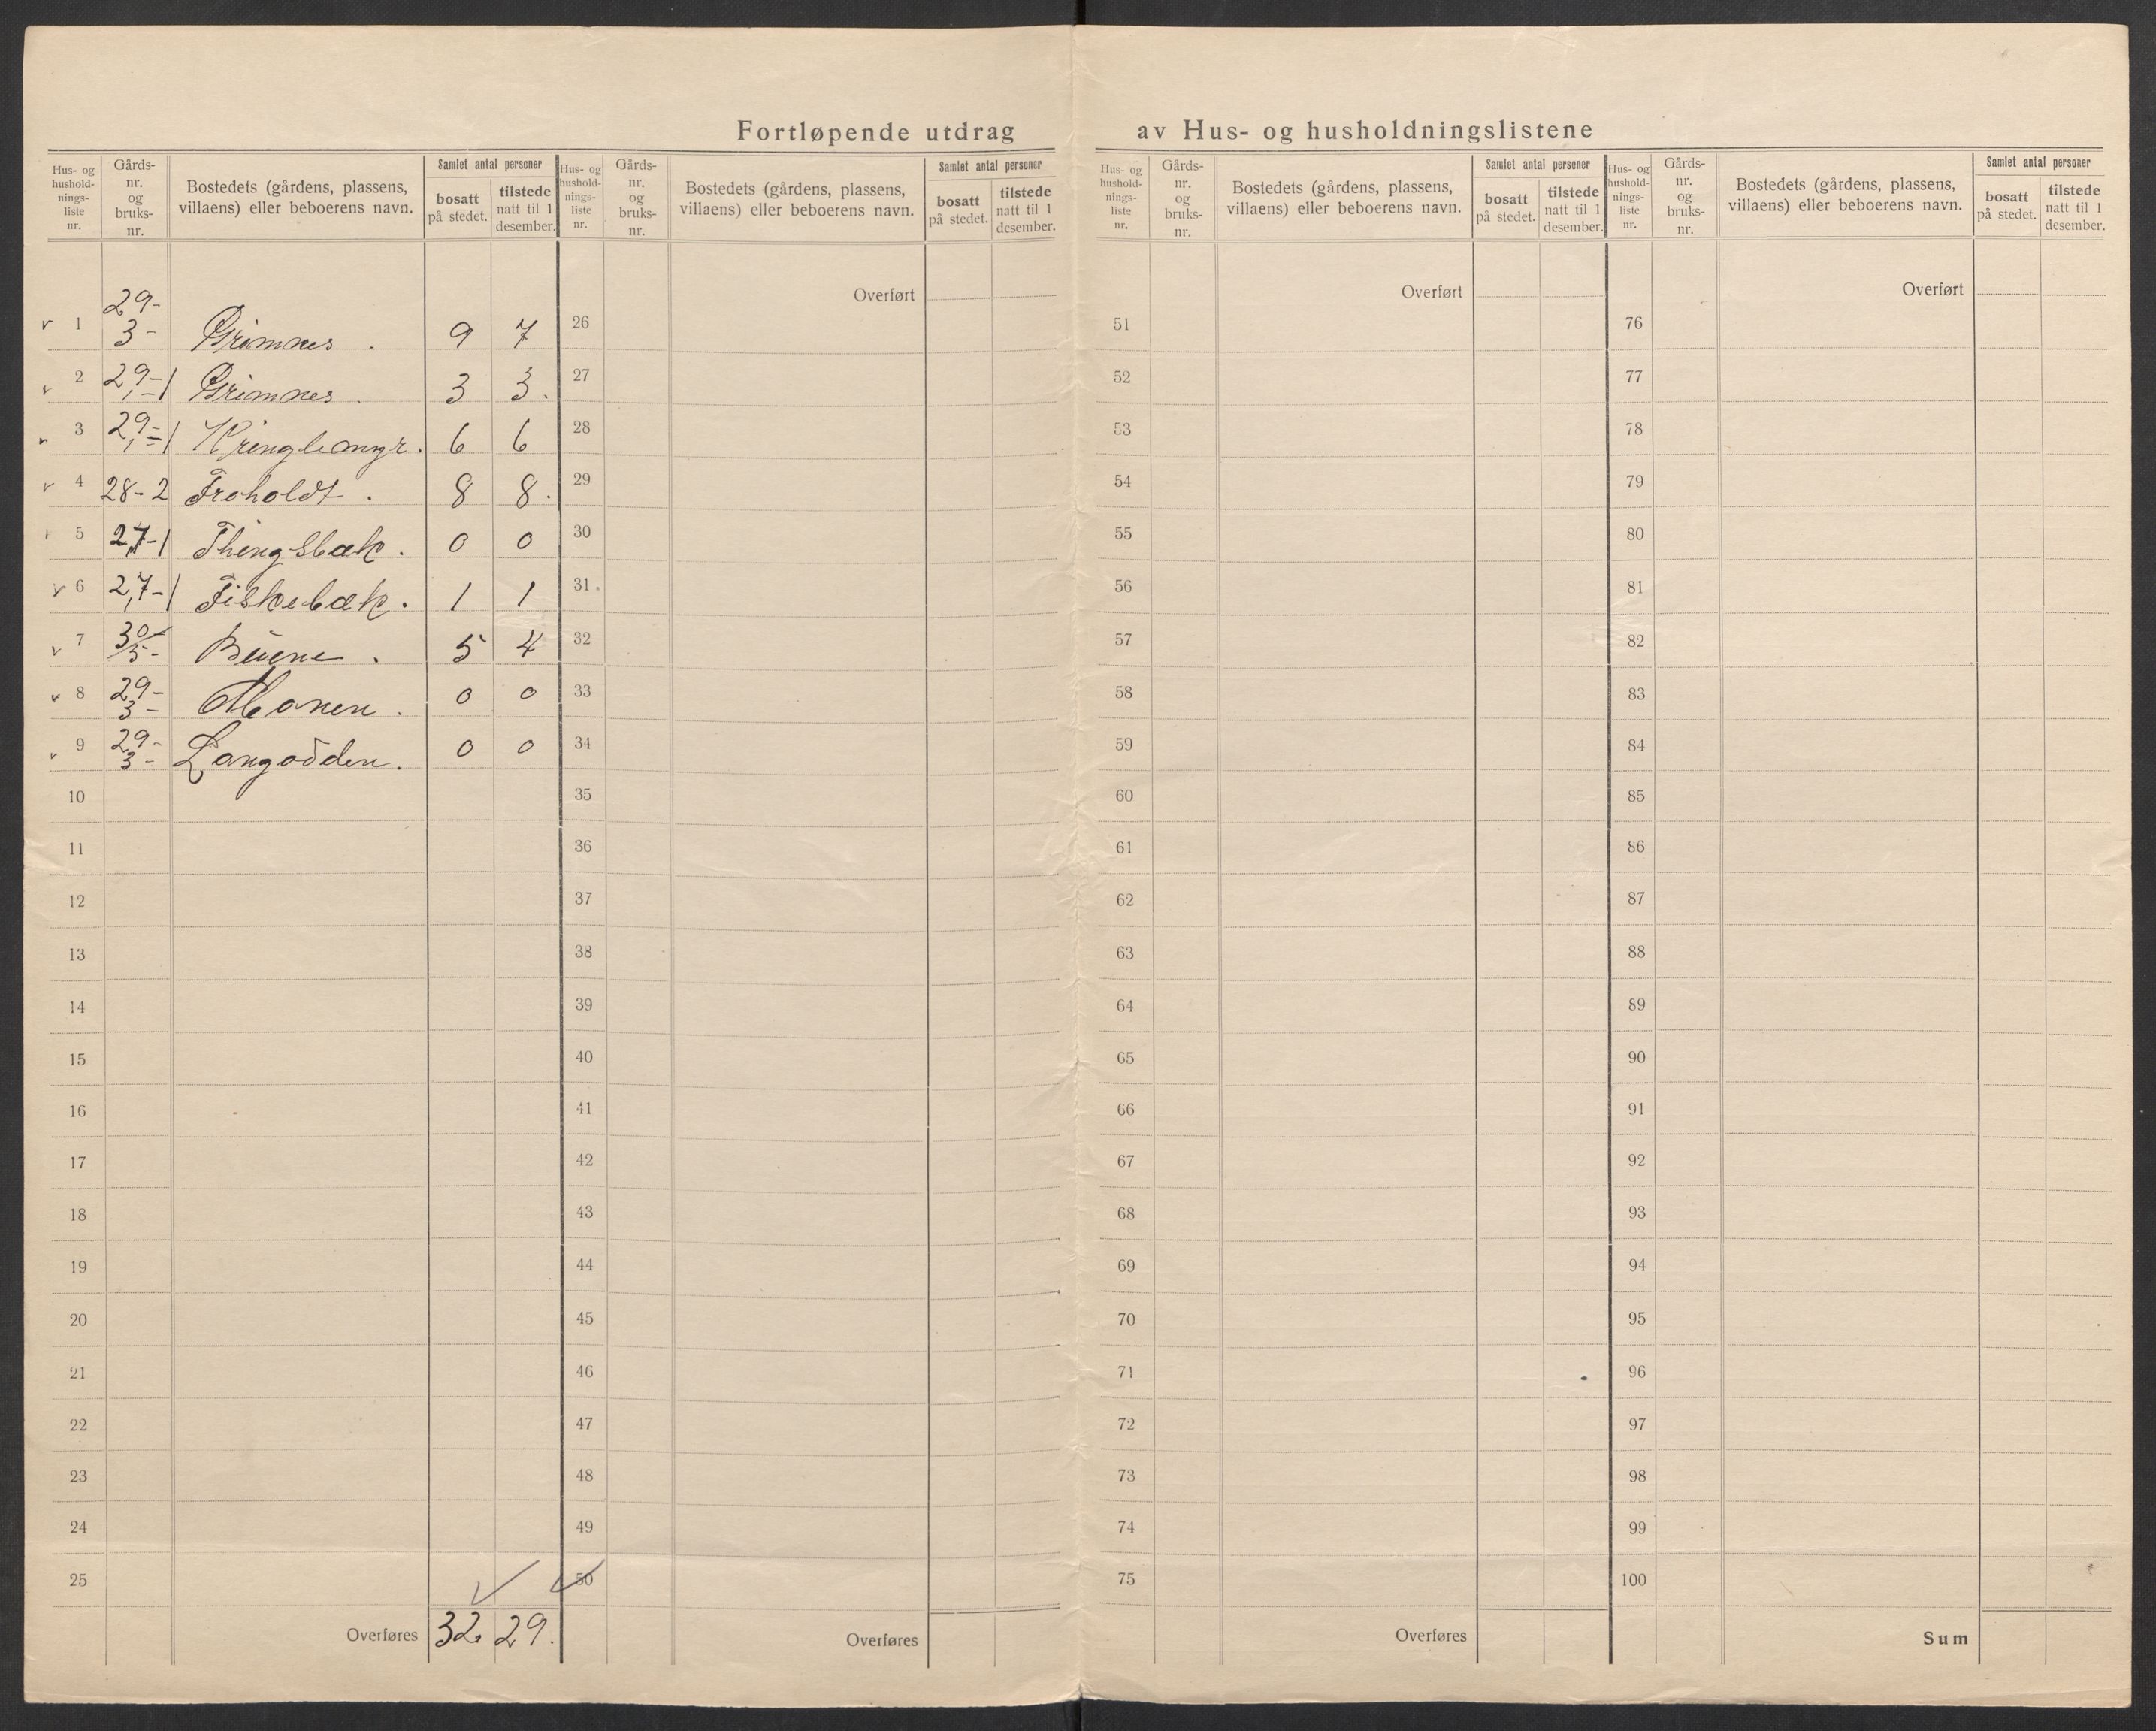 Fortløpende utdrag av Hus- og husholdningslistene
Hus- og hushold-nings-liste nr. | Gårds-nr. og bruks-nr. | Bostedets (gårdens, plassens, villaens) eller beboerens navn. | Samlet antal personer | bosatt på stedet. | tilstede natt til 1 desember.
Hus- og hushold-nings-liste nr. | Gårds-nr. og bruks-nr. | Bostedets (gårdens, plassens, villaens) eller beboerens navn. | Samlet antal personer | bosatt på stedet. | tilstede natt til 1 desember.
Hus- og hushold-nings-liste nr. | Gårds-nr. og bruks-nr. | Bostedets (gårdens, plassens, villaens) eller beboerens navn. | Samlet antal personer | bosatt på stedet. | tilstede natt til 1 desember.
Hus- og hushold-nings-liste nr. | Gårds-nr. og bruks-nr. | Bostedets (gårdens, plassens, villaens) eller beboerens navn. | Samlet antal personer | bosatt på stedet. | tilstede natt til 1 desember.
Overført Overført Overført
1 29-3- Grimnes. 9 7 26 51 76
2 29,-1 Grimnes. 3 3. 27 52 77
3 29,-1 Kringlemyr. 6 6 28 53 78
4 28-2 Froholdt. 8 8. 29 54 79
5 27-1 Thingsbæk. 0 0 30 55 80
6 27-1 Fiskebæk. 1 1 31 56 81
7 30/5- 5 4 32 57 82
8 29-3- Monen. 0 0 33 58 83
9 29-3- Langodden. 0 0 34 59 84
10 35 60 85
11 36 61 86
12 37 62 87
13 38 63 88
14 39 64 89
15 40 65 90
16 41 66 91
17 42 67 92
18 43 68 93
19 44 69 94
20 45 70 95
21 46 71 96
22 47 72 97
23 48 73 98
24 49 74 99
25 50 75 100
Overføres 32. 29. Overføres Overføres Sum